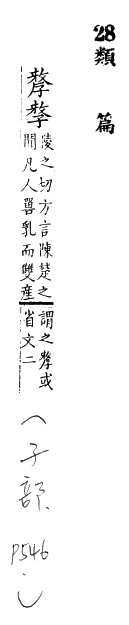 28類篇
孷
陵之切方言陳楚之
間凡人嘼乳而雙產
謂之孷或
省文二
(子部. P546.)